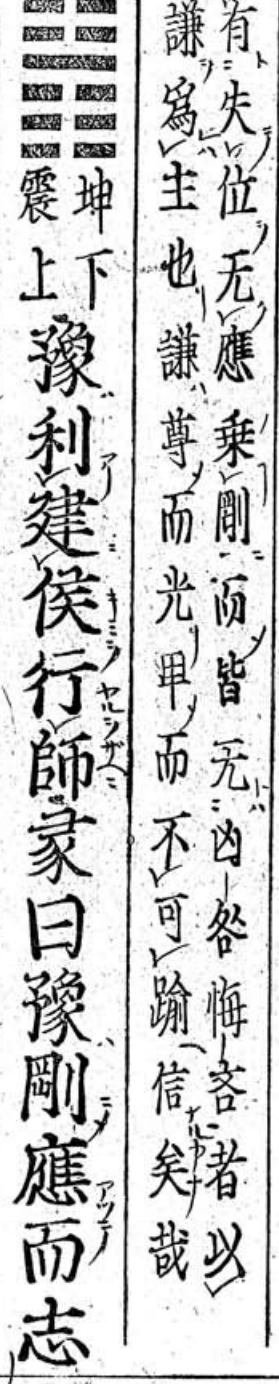 有失位无應乗剛而皆无凶咎悔吝者以
謙爲主也謙尊而光卑而不可踰信矣哉
坤下
震上
豫利建侯行師彖曰豫剛應而志